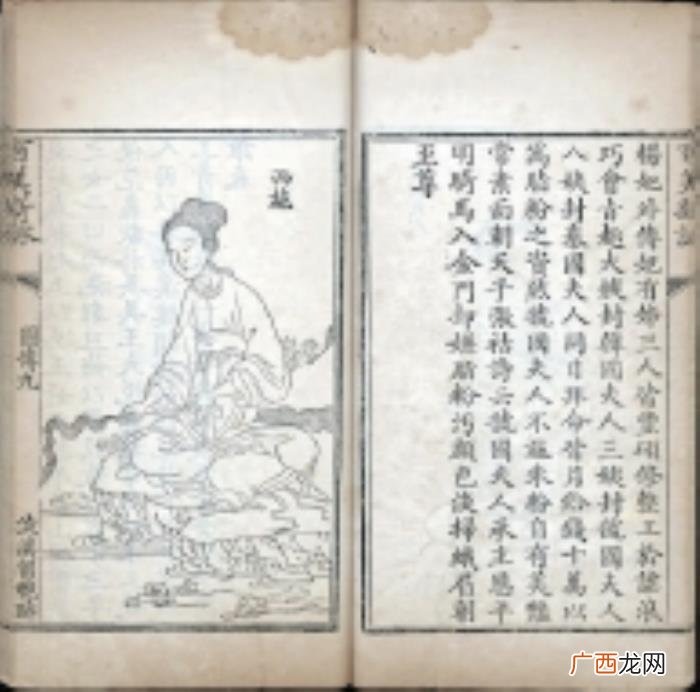 楊妃外傳妃有姊三人皆豐碩修整工於謔浪
巧會旨趣大姨封韓國夫人三姨封虢國夫人
八姨封秦國夫人同日拜命皆月給錢十萬以
為脂粉之資然虢國夫人不施朱粉自有美艷
常素面朝天子張祜詩云虢國夫人承主恩平
明騎馬入金門却嫌脂粉污顏色淡掃蛾眉朝
至尊
西施
圖傳九
广西龙网